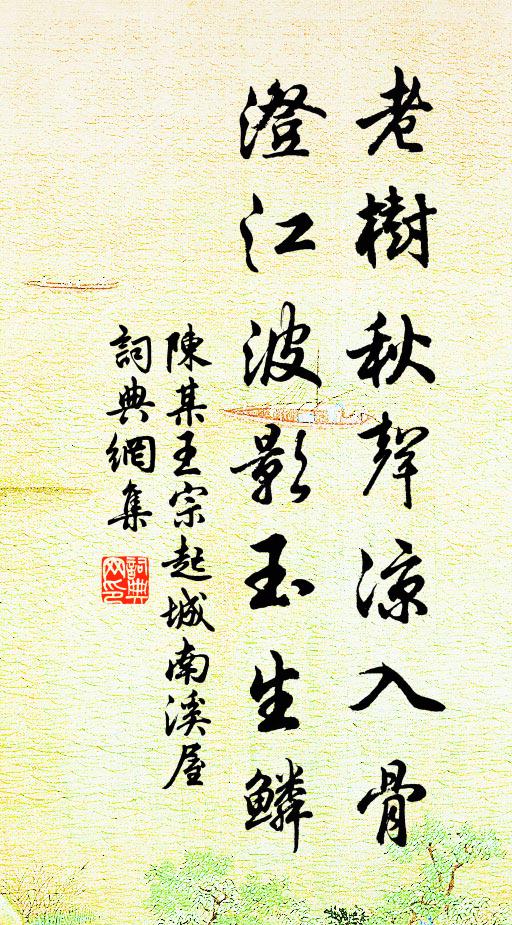 老樹秋聲涼入骨
澄江波影玉生鱗
陳某王宗起城南溪屋
詞典網集
詞典网印